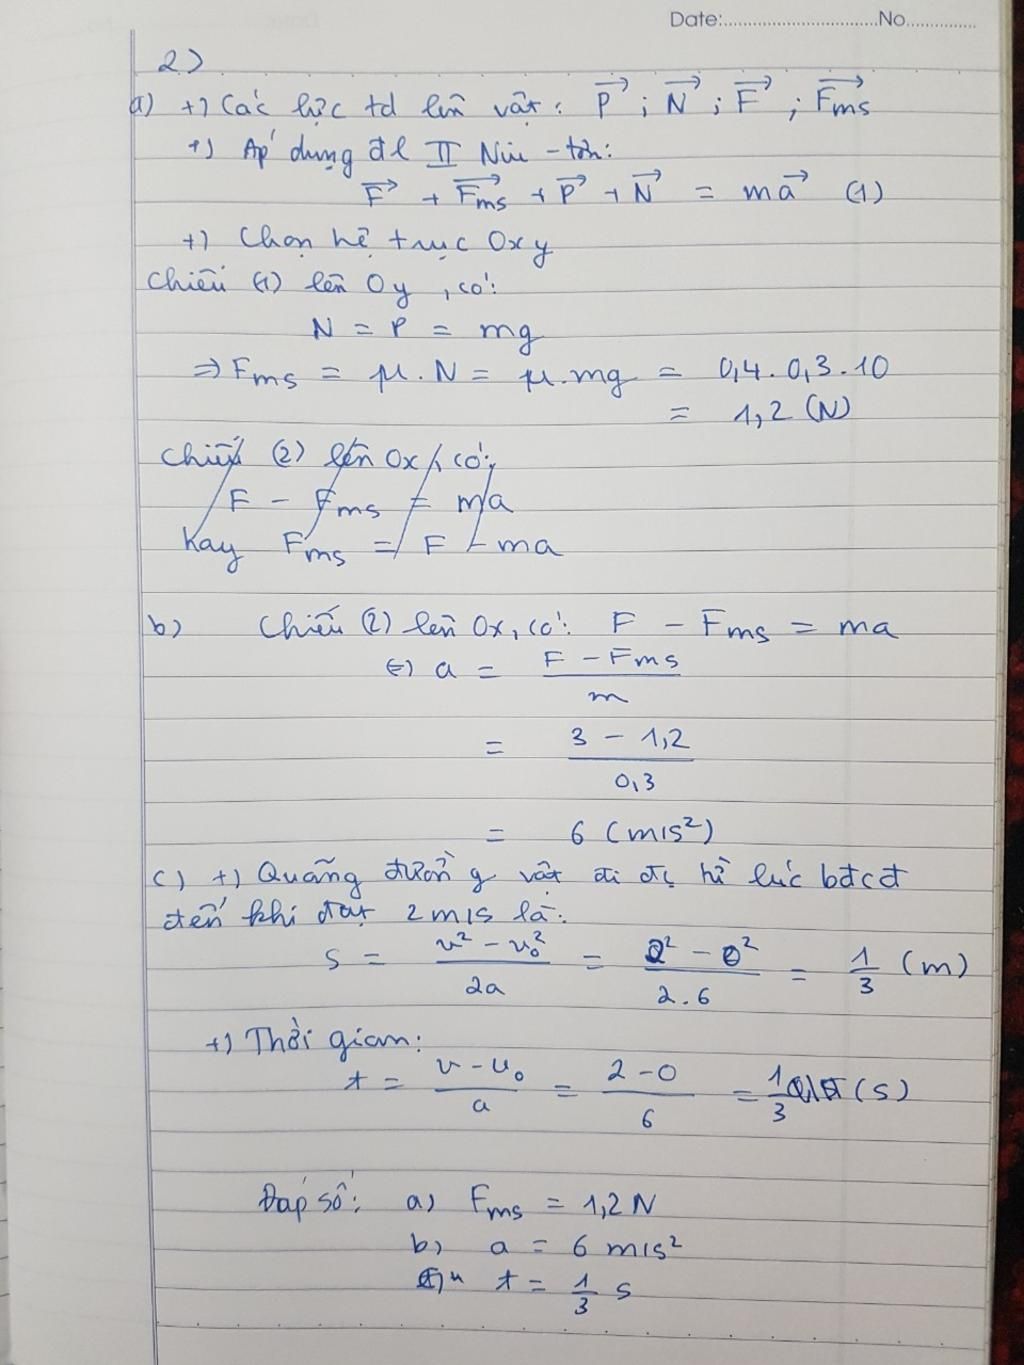 Date:..............................No..............
2)
a) +) Các lực td lên vật: P→ ; N→ ; F→ ; Fms→
+) Áp dụng đl II Niu-tơn:
F→ + Fms→ + P→ + N→ = ma→ (1)
+) Chọn hệ trục Oxy
Chiếu (1) lên Oy, có:
N = P = mg
⇒ Fms = μ.N = μ.mg = 0,4.0,3.10
= 1,2 (N)
Chiếu (2) lên Ox, có:
F - Fms = ma
Hay Fms = F - ma
b) Chiếu (2) lên Ox, có: F - Fms = ma
(=) a = (F - Fms)/m
= (3 - 1,2)/0,3
= 6 (m/s²)
c) +) Quãng đường vật đi đc từ lúc bđcđ
đến khi đạt 2m/s là:
s = (v² - v₀²)/2a = (2² - 0²)/2.6 = 1/3 (m)
+) Thời gian:
t = (v - v₀)/a = (2 - 0)/6 = 1/3 (s)
Đáp số: a) Fms = 1,2 N
b) a = 6 m/s²
t = 1/3 s